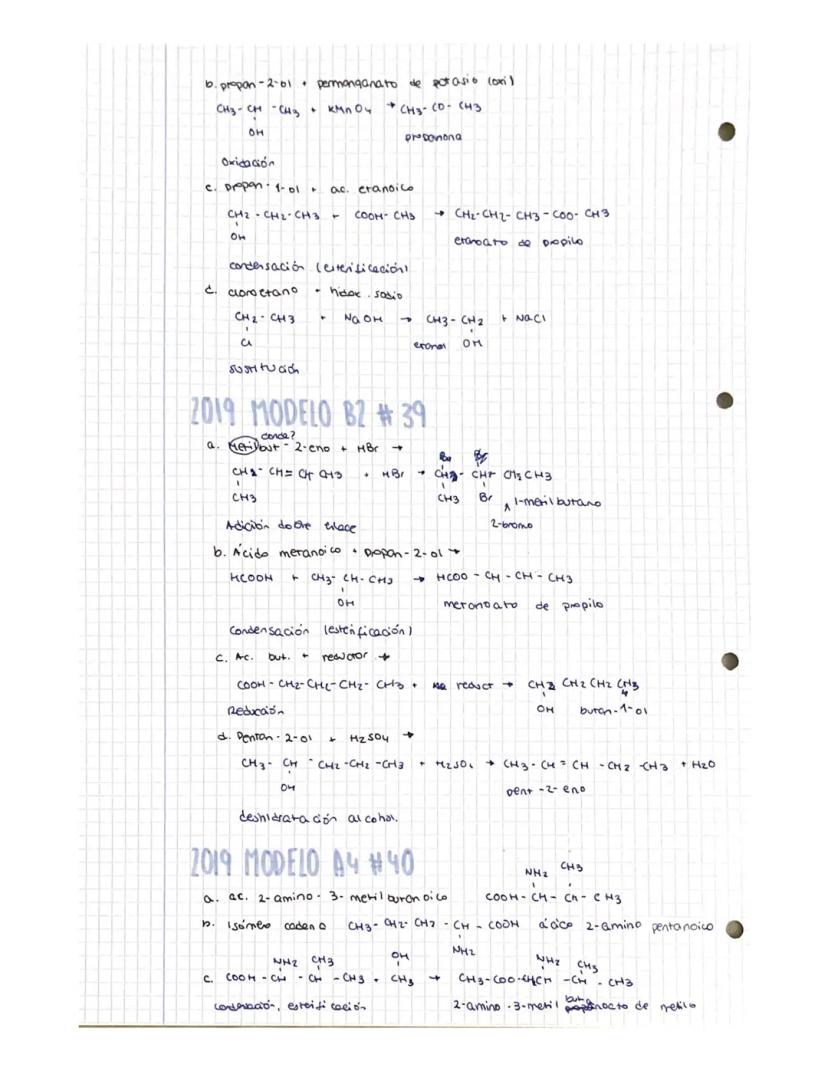 b. propan-2-ol + permanganato de potasio (oxi)
CH3-CH-CH3 + KMnO4 → CH3-CO-CH3
OH
propanona
Oxidación
c. propan-1-ol + ac. etanoico
CH2-CH2-CH3 + COOH-CH3 → CH2-CH2-CH3-COO-CH3
OH
etanoato de propilo
condensación (esterificación)
d. cloroetano + hidox. sodio
CH2-CH3 + NaOH → CH3-CH2 + NaCl
Cl
etanol OH
sustitución
2019 MODELO B2 #39
donde?
a. Metilbut-2-eno + HBr →
CH2-CH=CH CH3 + HBr → CH2-CH- CH2CH3
CH3
CH3 Br 1-metilbutano
2-bromo
Adición doble enlace
b. Ácido metanoico + propan-2-ol →
HCOOH + CH3-CH-CH3 → HCOO-CH-CH-CH3
OH
metanoato de propilo
Condensación (esterificación)
c. Ac. but. + reductor →
COOH-CH2-CH2-CH2-CH3 + reduct → CH2 CH2 CH2 CH3
OH butan-1-ol
Reducción
d. Pentan-2-ol + H2SO4 →
CH3-CH-CH2-CH2-CH3 + H2SO4 → CH3-CH=CH-CH2-CH3 + H2O
OH
pent-2-eno
deshidratación alcohol.
2019 MODELO A4 #40
NH2 CH3
a. ac. 2-amino-3-metilbutanoico COOH-CH-CH-CH3
b. Isómero cadena CH3-CH2-CH2-CH-COOH ácido 2-amino pentanoico
NH2
NH2 CH3 OH NH2 CH3
c. COOH-CH-CH-CH3 + CH3 → CH3-COO-CH-CH-CH3
condensación, esterificación
2-amino-3-metil butanoato de metilo